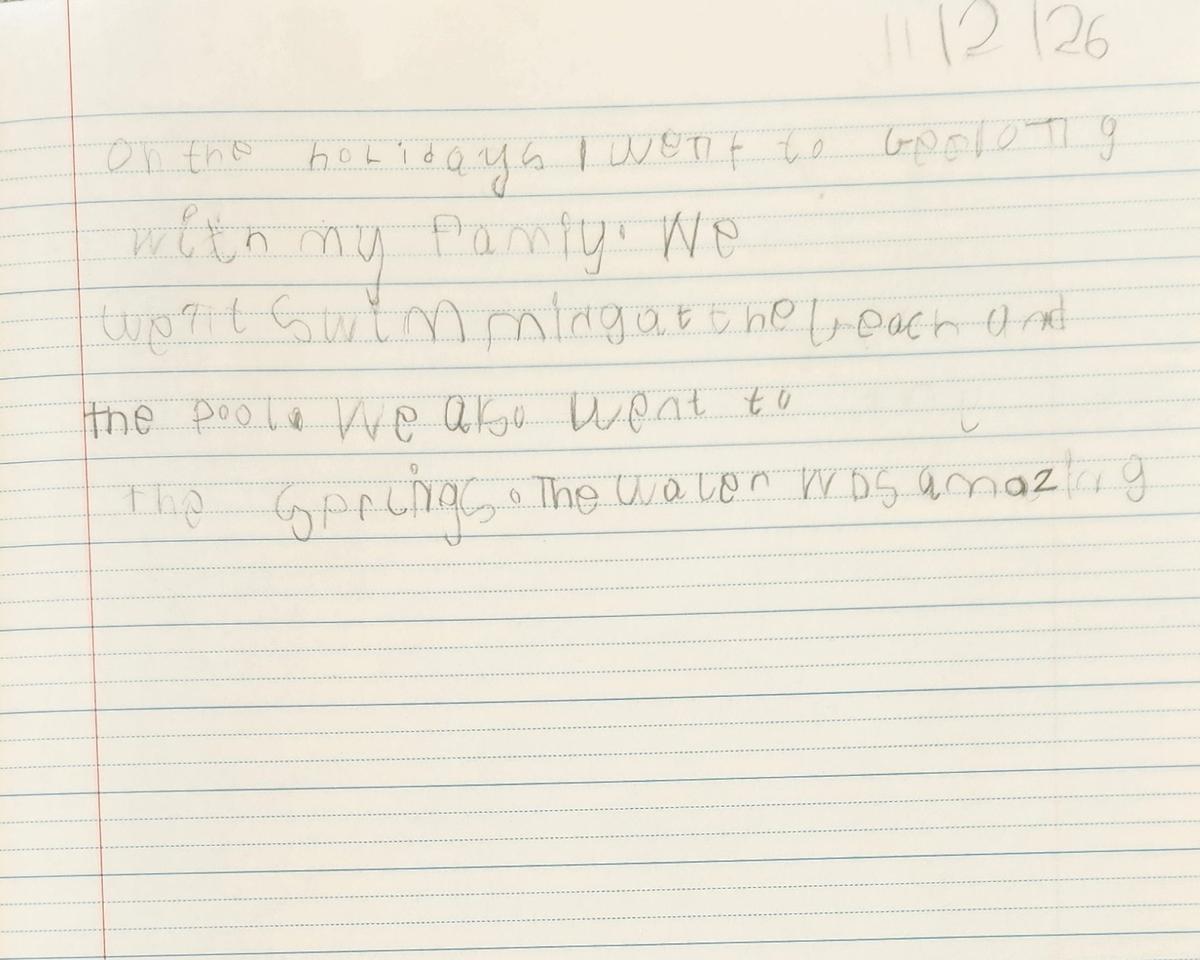 11/2/26
On the holidays I went to Geelong
with my Pamiy. We
went Swimming at the beach and
the pool. We also went to
the Springs. The water was amazing